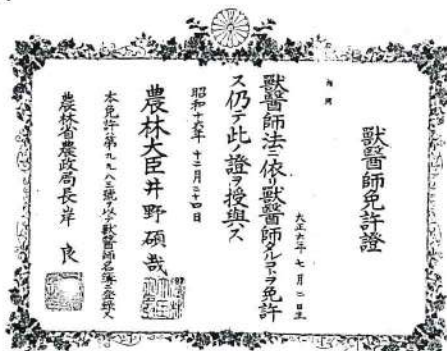 獸醫師免許證
大正六年七月二日生
獸醫師法ニ依リ獸醫師タルコトヲ免許
ス仍テ此ノ證ヲ授與ス
昭和十六年十二月二十四日
農林大臣井野碩哉
本免許ハ第九九八三號ヲ以テ獸醫師名簿ニ登録ス
農林省農政局長岸良